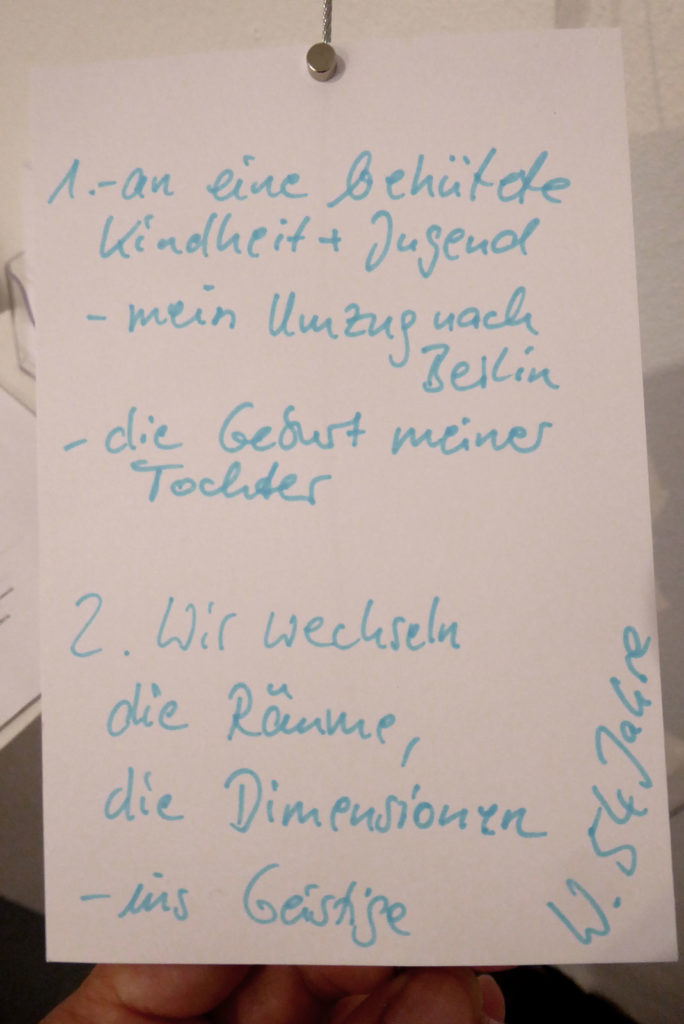 1.-an eine behütete
Kindheit + Jugend
- mein Umzug nach
Berlin
- die Geburt meiner
Tochter
2. Wir wechseln
die Räume,
die Dimensionen
- ins Geistige
W. 54 Jahre